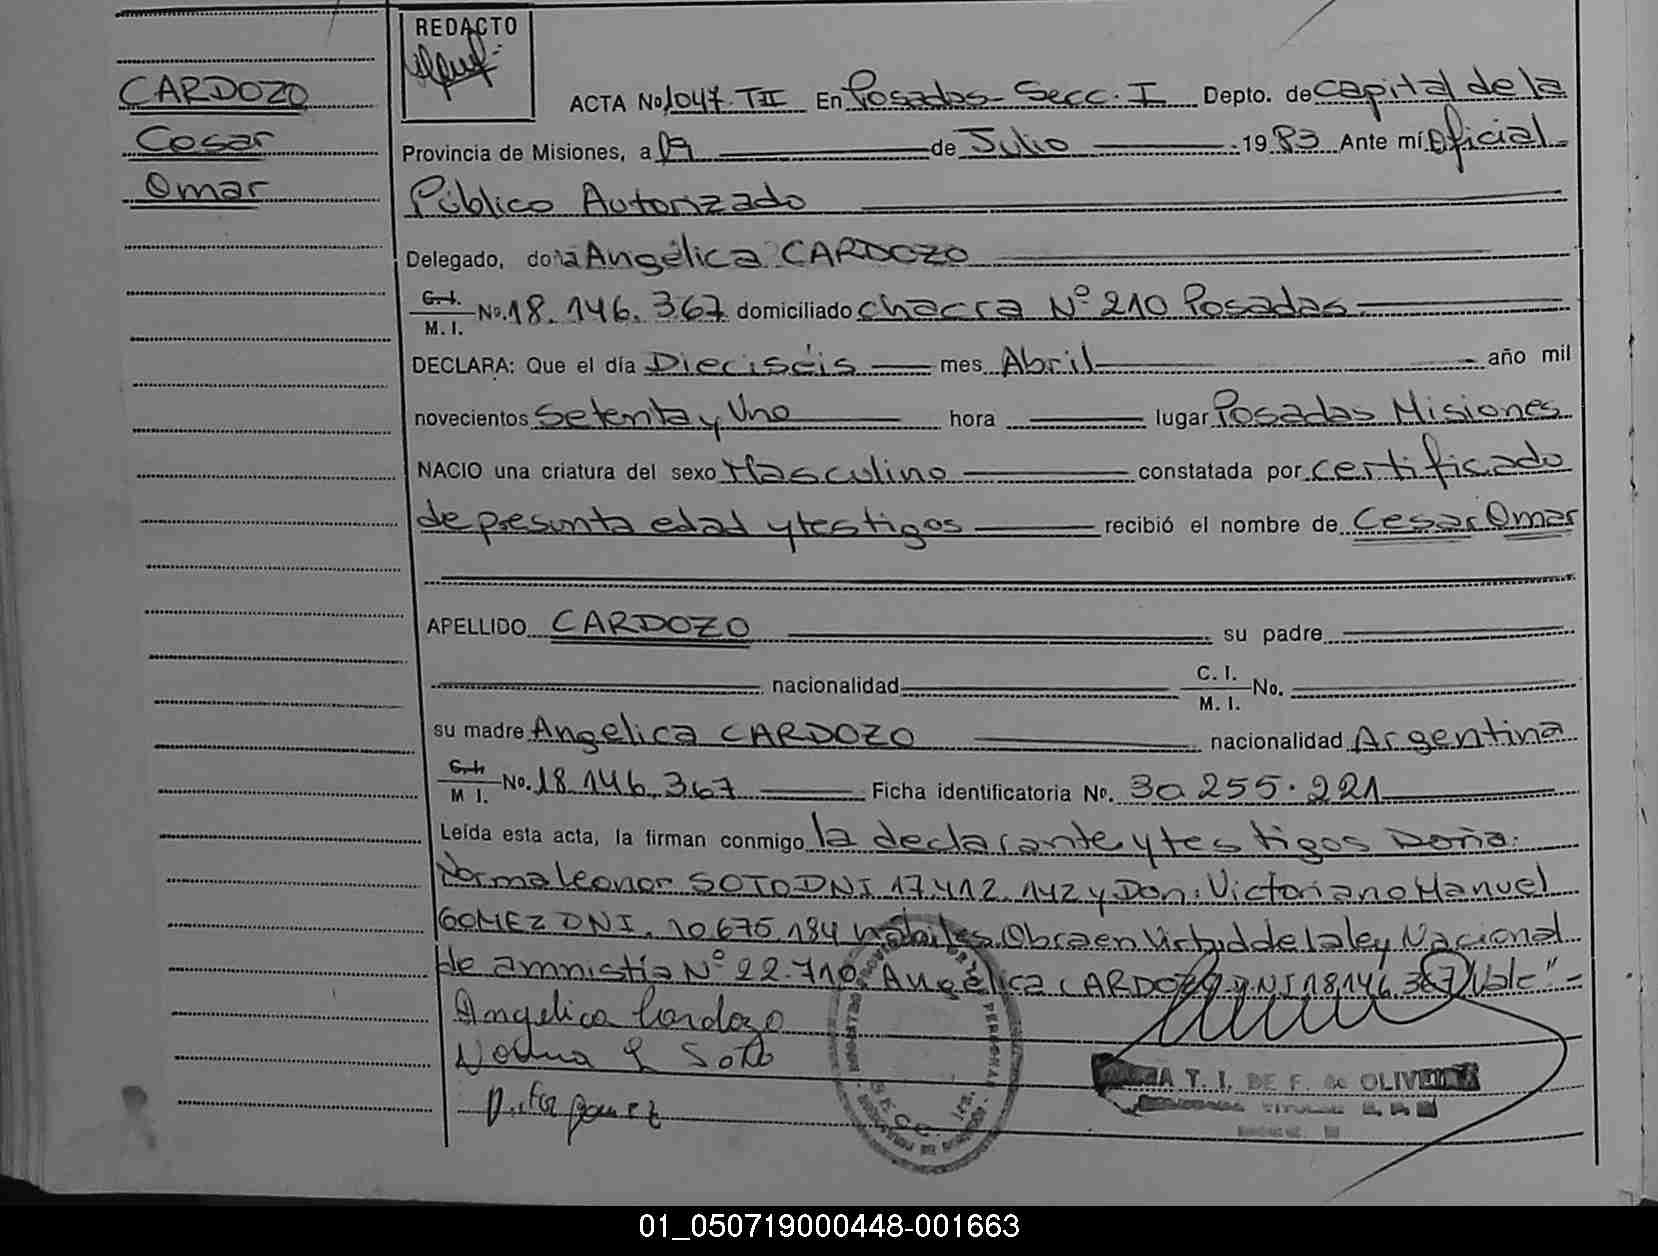 REDACTO
CARDOZO
Cesar
Omar
ACTA No 1047 TII En Posadas Secc. I Depto. de Capital de la
Provincia de Misiones, a 19 de Julio 1983 Ante mí Oficial
Público Autorizado
Delegado, doña Angélica CARDOZO
C.I. M. I. No. 18.146.367 domiciliado chacra Nº 210 Posadas
DECLARA: Que el día Dieciséis mes Abril año mil
novecientos Setenta y Uno hora lugar Posadas Misiones
NACIO una criatura del sexo Masculino constatada por certificado
de presunta edad y testigos recibió el nombre de Cesar Omar
APELLIDO CARDOZO su padre
nacionalidad C. I. M. I. No.
su madre Angelica CARDOZO nacionalidad Argentina
C.I. M I. No. 18.146.367 Ficha identificatoria No. 30 255.221
Leída esta acta, la firman conmigo la declarante y testigos Doña:
Norma Leonor SOTO DNI 17.412.142 y Don: Victoriano Manuel
GOMEZ DNI. 10.675.184 habiles. Obra en Virtud de la ley Nacional
de amnistía Nº 22.710. Angélica CARDOZO y NI 18.146.367 Vale"=
Angelica Cardozo
Norma L Soto
T. I. DE F. de OLIVEIRA
01_050719000448-001663